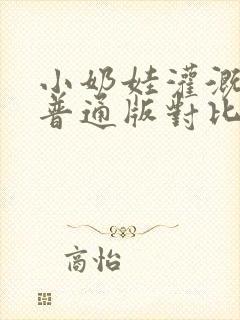 小奶娃灌溉
普通版對比
高怡